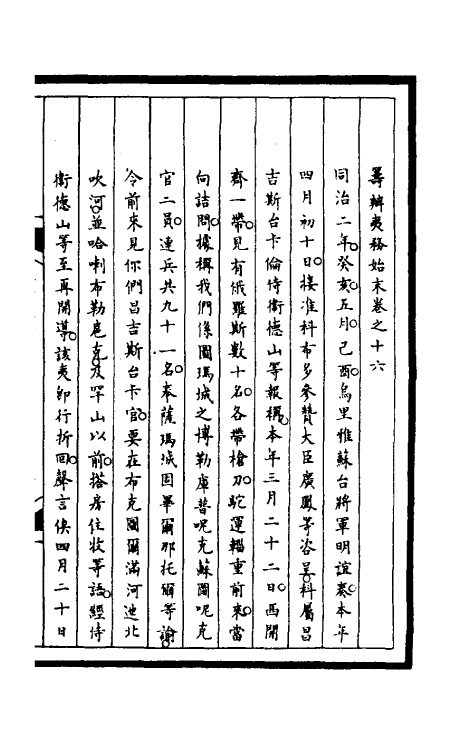 籌辦夷務始末卷之十六
同治二年癸亥五月己酉烏里雅蘇台將軍明誼奏本年
四月初十日接准科布多參贊大臣廣鳳等咨呈科屬昌
吉斯台卡倫侍衛德山等報稱本年三月二十二日酉開
齊一帶見有俄羅斯數十名各帶槍刀駝運輜重前來當
向詰問據稱我們係圖瑪城之博勒庫普呢克蘇圖呢克
官二員連兵共九十一名奉薩瑪城固畢爾那托爾等諭
令前來見你們昌吉斯台卡官要在布克圖爾滿河迤北
吹河並哈喇布勒扈克及罕山以前搭房住牧等語經侍
衛德山等至再開導該夷卽行折回聲言俟四月二十日